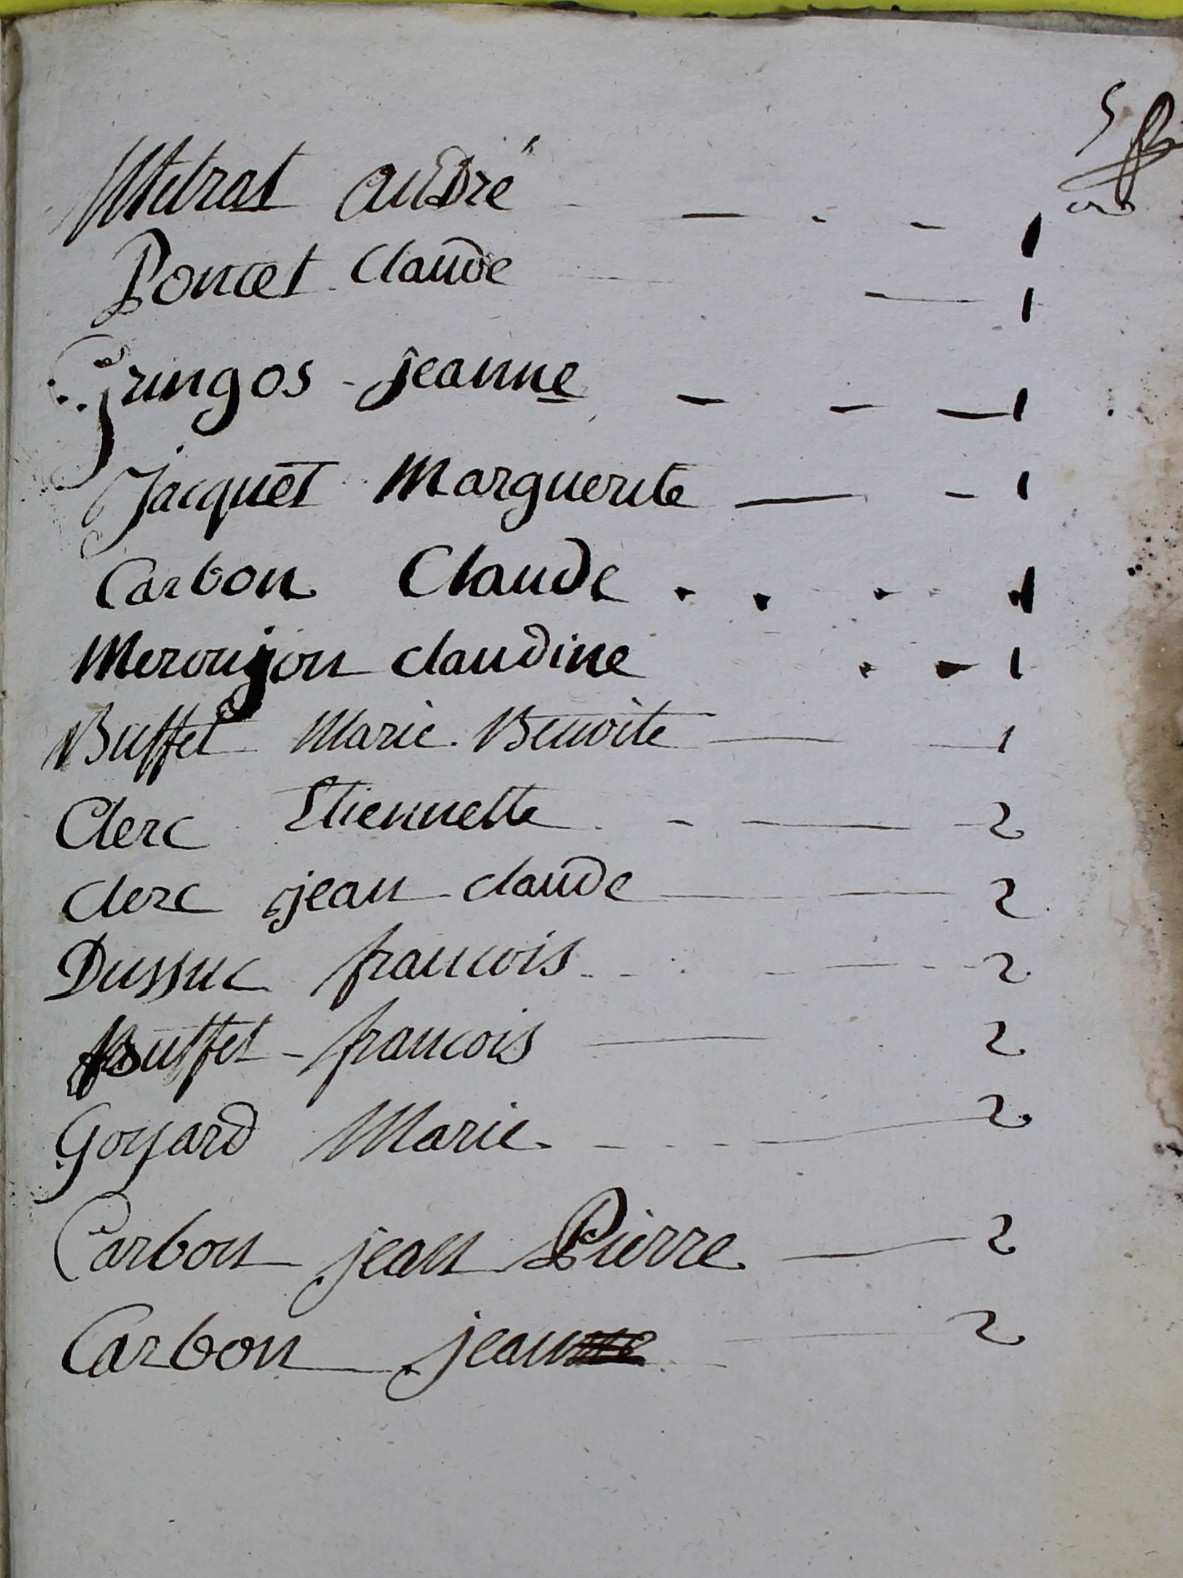 5
Metrat andré - - - 1
Poncet Claude - 1
Gringos jeanne - - - 1
Jacquet Marguerite - - 1
Carbon Claude . . . . 1
Merougon claudine . - 1
Buffet Marie Benoite - - 1
Clerc Etiennette - - - 2
Clerc jean claude - - 2
Dussuc francois - - - 2
Buffet - francois - 2
Goyard Marie - - - 2
Carbon jean Pierre - 2
Carbon jean - 2